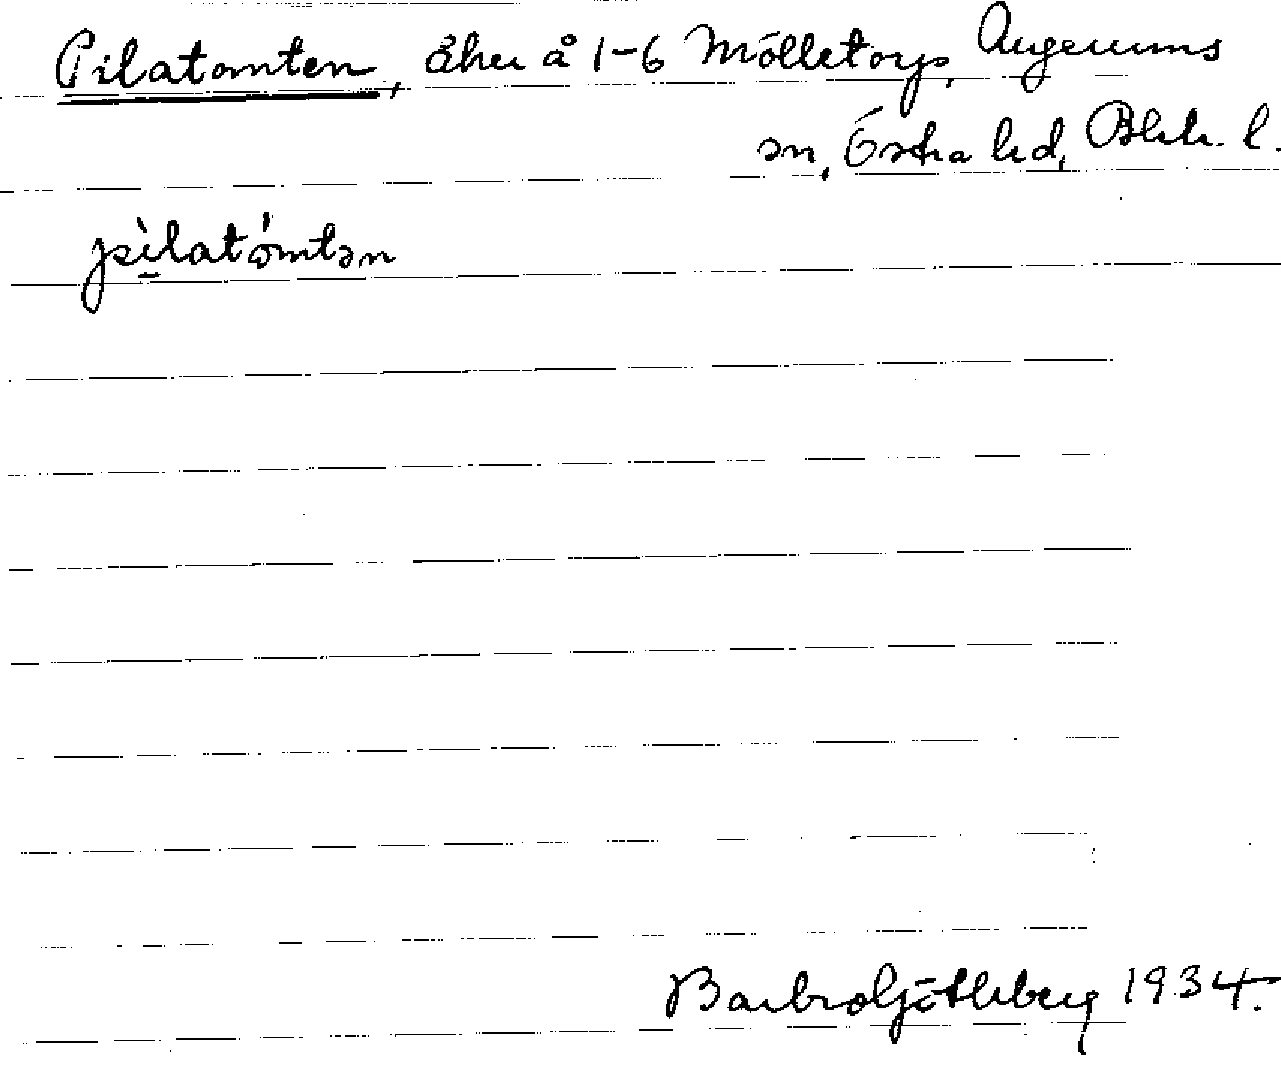 Pilatomten, åker å 1-6 Mölletorp, Augerums
sn, Östra hd, Blek. l.
pìlatómtən
Barbro Götlberg 1934.